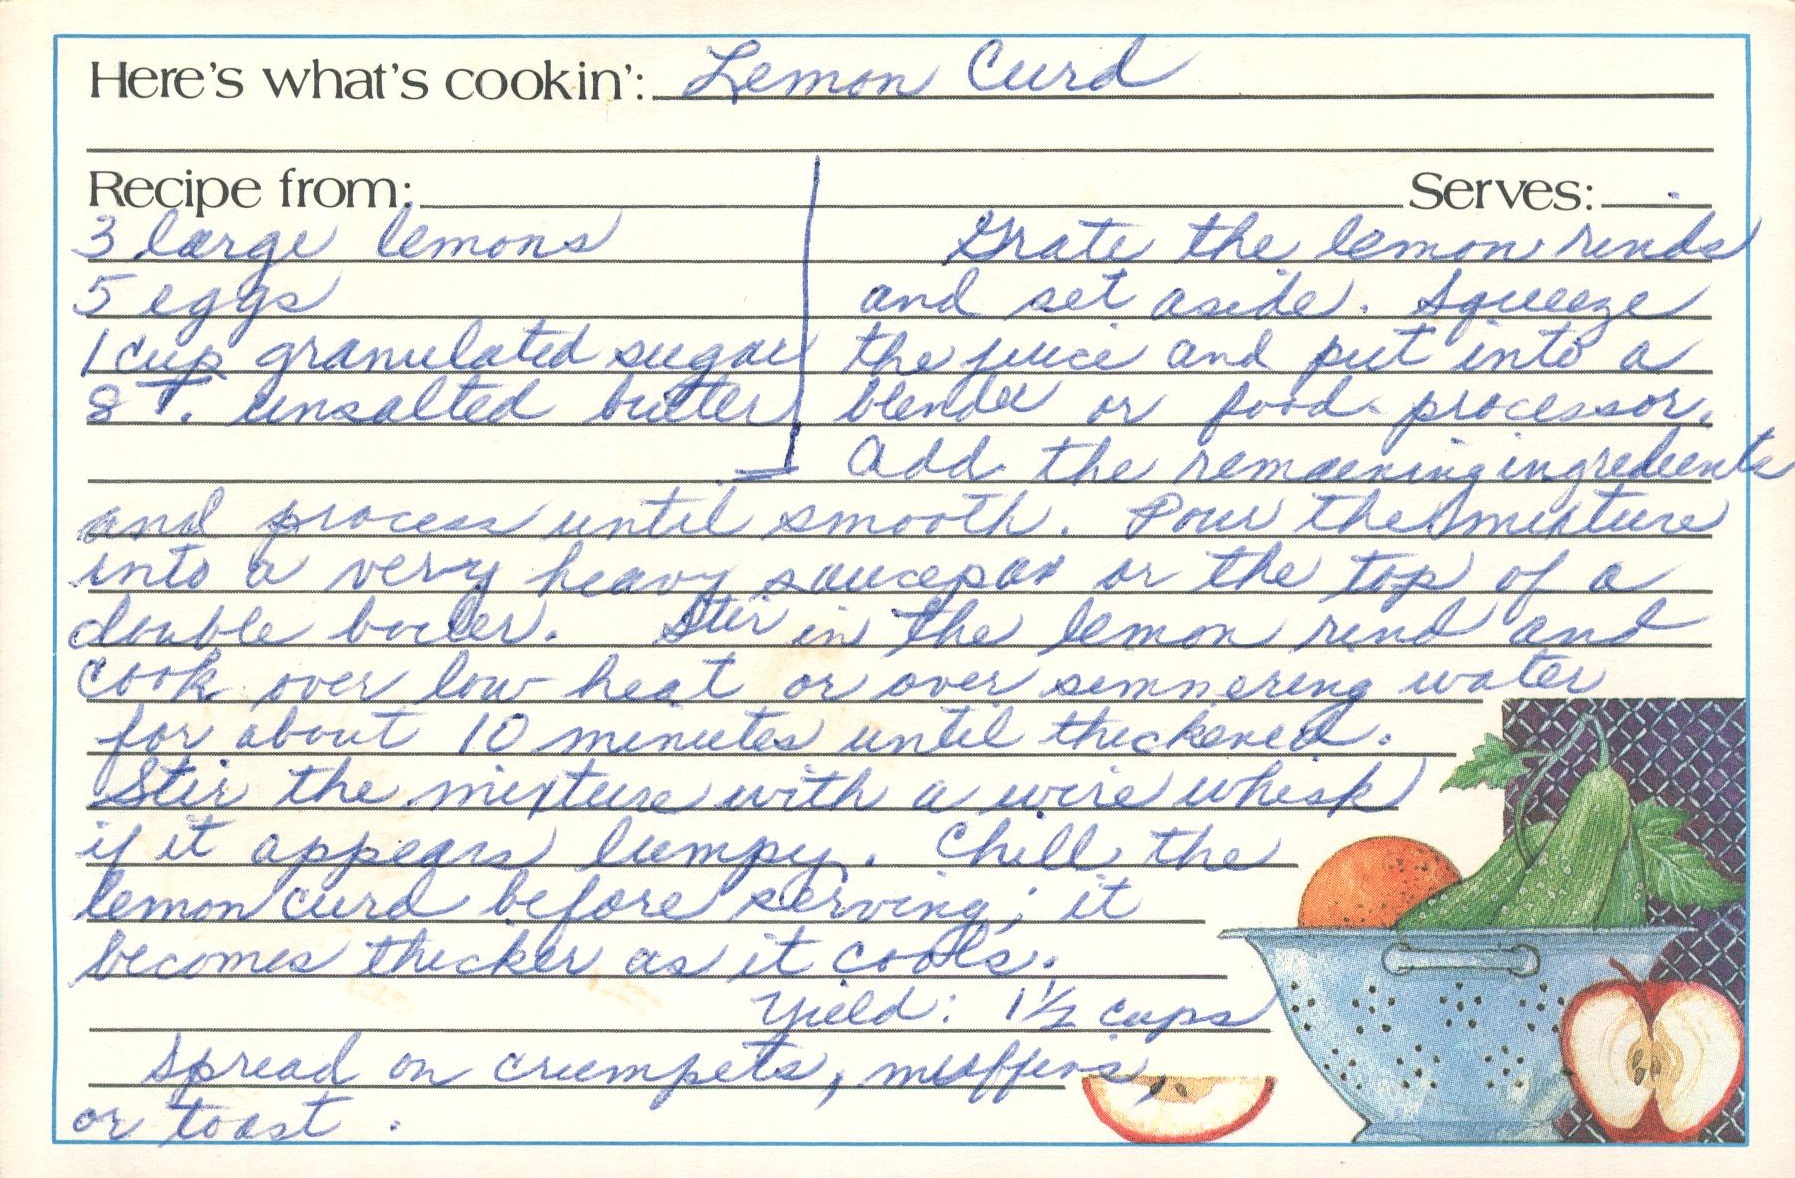 Here's what's cookin': Lemon Curd
Recipe from:
Serves:
3 large lemons
5 eggs
1 cup granulated sugar
8 T. unsalted butter
Grate the lemon rinds
and set aside. Squeeze
the juice and put into a
blender or food processor.
Add the remaining ingredients
and process until smooth. Pour the mixture
into a very heavy saucepan or the top of a
double boiler. Stir in the lemon rind and
cook over low heat or over simmering water
for about 10 minutes until thickened.
Stir the mixture with a wire whisk
if it appears lumpy. Chill the
lemon curd before serving; it
becomes thicker as it cools.
Yield: 1 1/2 cups
Spread on crumpets, muffins,
or toast.